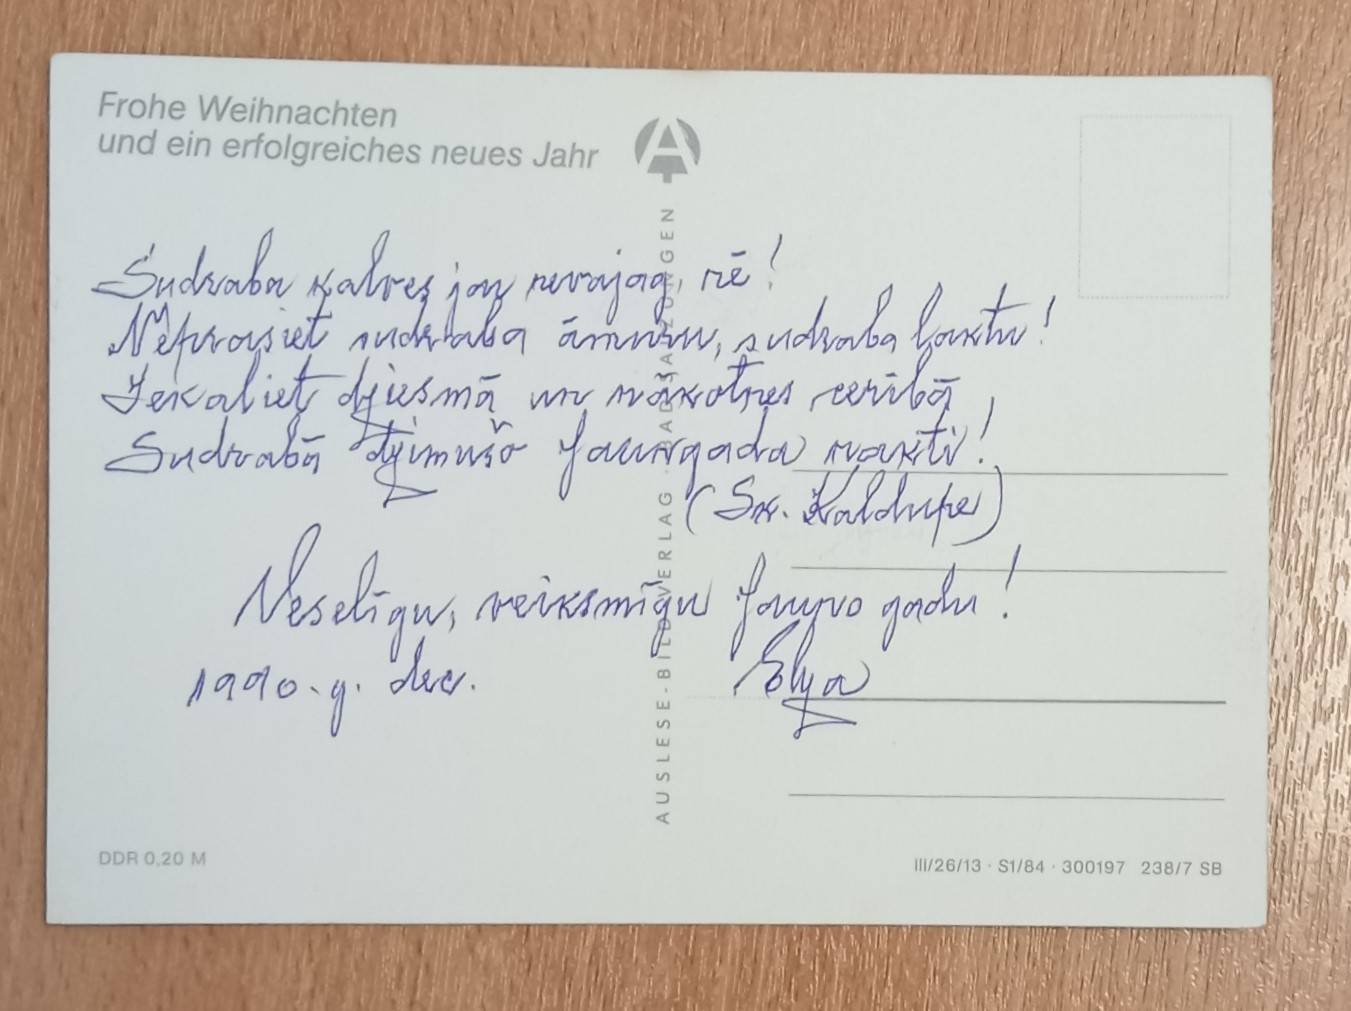 Frohe Weihnachten
und ein erfolgreiches neues Jahr
Sudraba kalves jau nevajag, nē!
Neprasiet sudraba āmuru, sudraba laktu!
Iekaliet dziesmā un nākotnes cerībā
Sudrabā dzimušo Jaungada nakti!
(Sk. Kaldupe)
Veselīgu, veiksmīgu Jauno gadu!
1990. g. dec.
Elga
AUSLESE-BILD-VERLAG
DDR 0,20 M
III/26/13 · S1/84 · 300197 238/7 SB